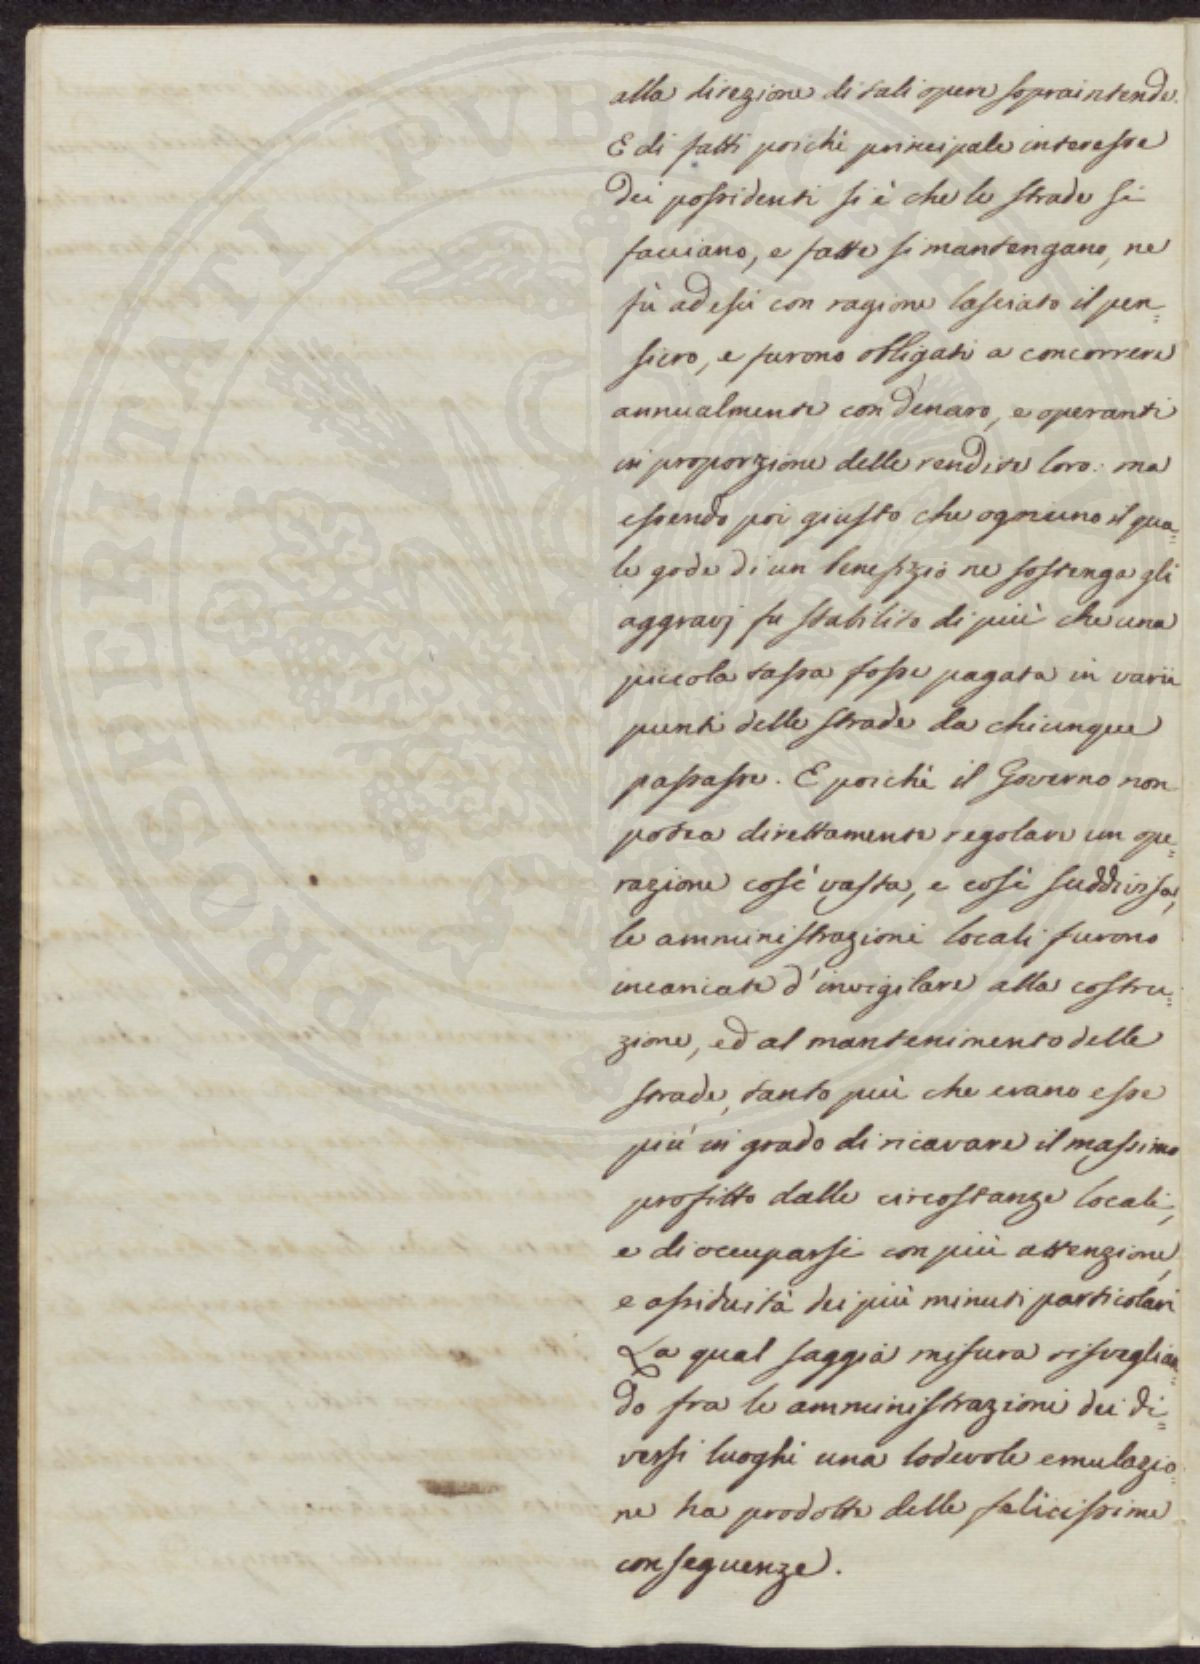 alla direzione di tali opere sopraintende.
E di fatti poichè principale interesse
dei possidenti si è che le strade si
facciano, e fatte si mantengano, ne
fù ad essi con ragione lasciato il pen=
siero, e furono obligati a concorrere
annualmente con denaro, e operanti
in proporzione delle rendite loro: ma
essendo poi giusto che ogniuno il qua=
le gode di un benefizio ne sostenga gli
aggravj fu stabilito di più che una
piccola tassa fosse pagata in varii
punti delle strade da chiunque
passasse. E poichè il Governo non
potea direttamente regolare un ope=
razione così vasta, e così suddivisa,
le amministrazioni locali furono
incaricate d'invigilare alla costru=
zione, ed al mantenimento delle
strade, tanto più che erano esse
più in grado di ricavare il massimo
profitto dalle circostanze locali,
e di occuparsi con più attenzione,
e assiduità dei più minuti particolari
La qual saggia misura risveglian=
do fra le amministrazioni dei di=
versi luoghi una lodevole emulazio=
ne ha prodotte delle felicissime
conseguenze.
PROSPERITATI PVBLICAE